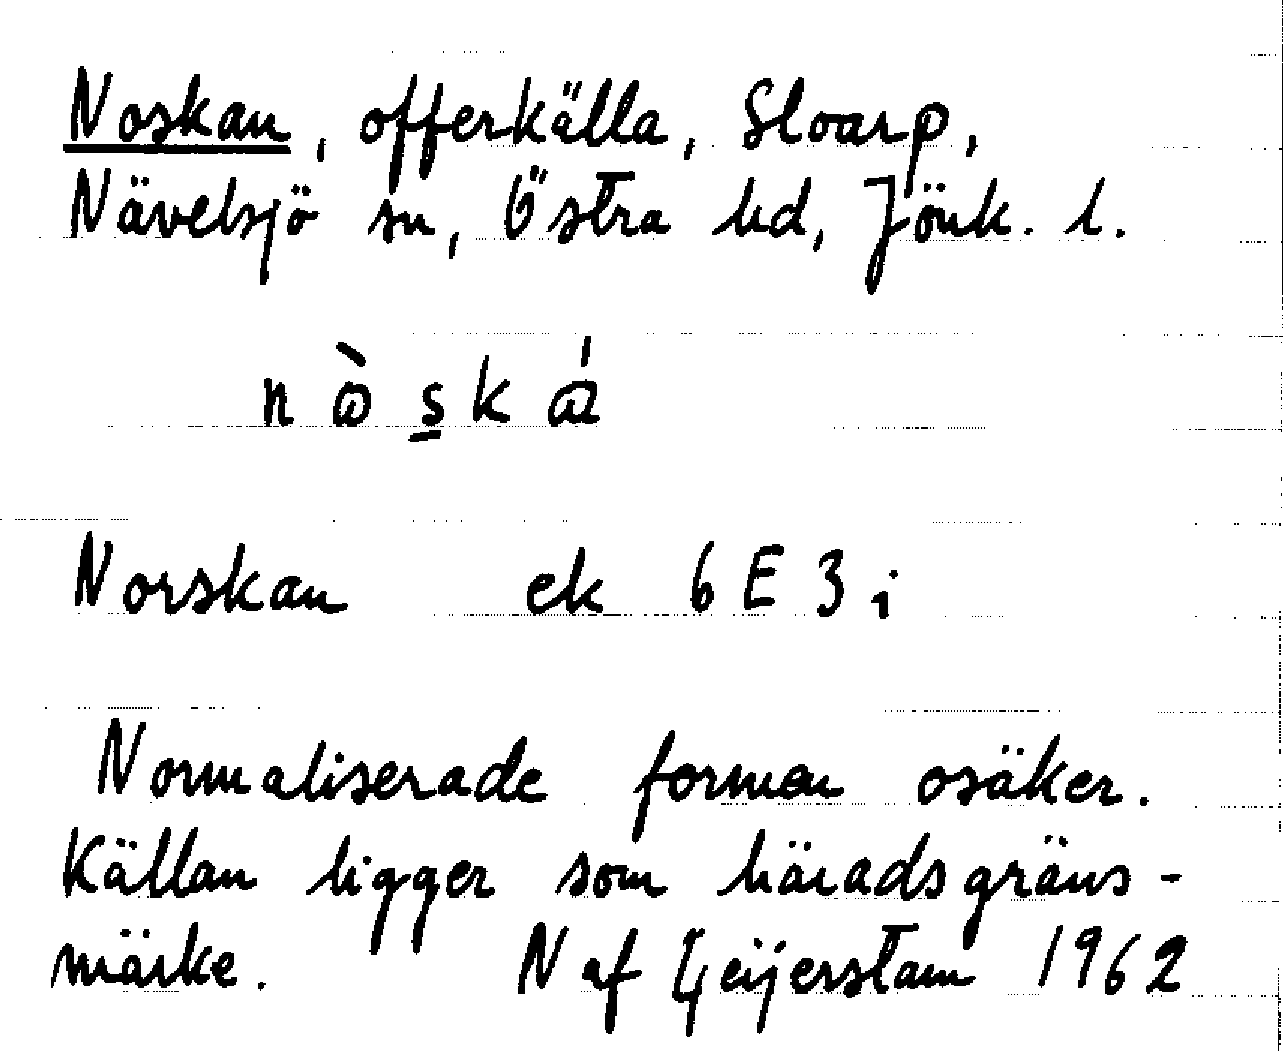 Noskan, offerkälla, Sloarp,
Nävelsjö sn, Östra hd, Jönk. l.
Norskan ek 6 E 3 i
Normaliserade formen osäker.
Källan ligger som häradsgräns-
märke. N af Geijerstam 1962